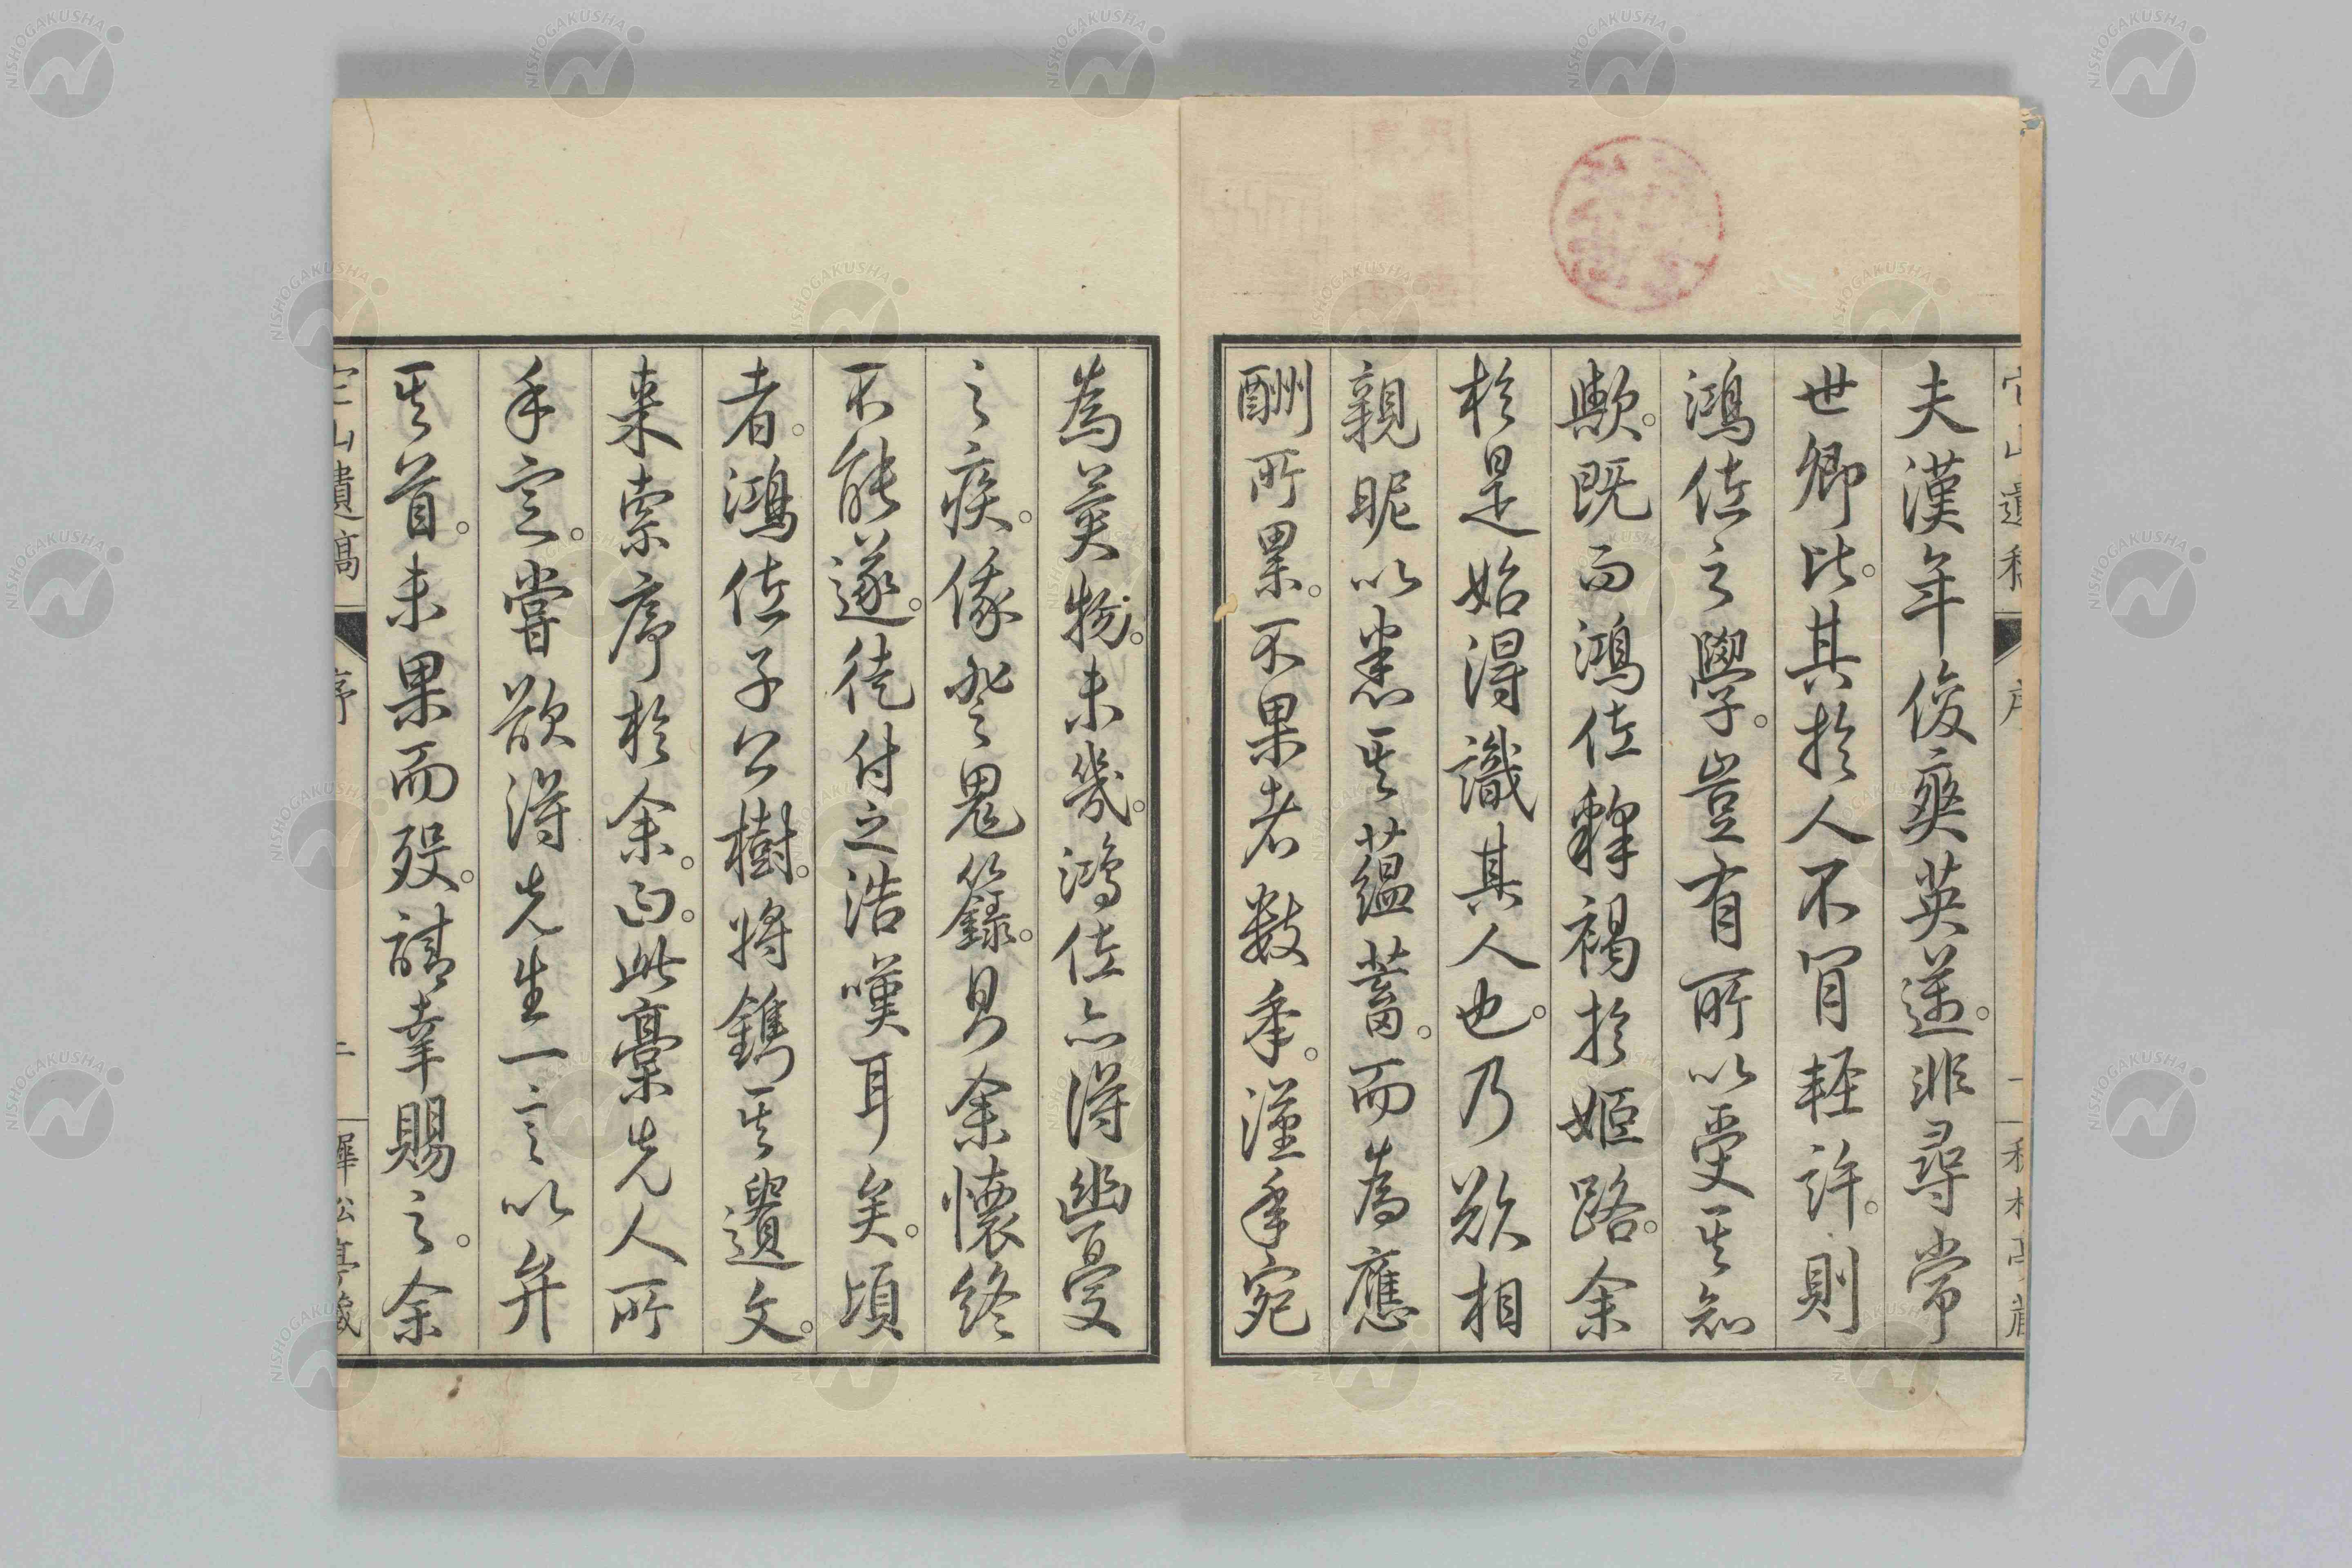 夫漢年俊爽英邁。非尋常
世卿比。其於人不肯輕許。則
鴻佐之學。豈有所以受其知
歟。既而鴻佐釋褐於姬路。余
於是始得識其人也。乃欲相
親昵以悉其蘊蓄。而為應
酬所累。不果者數年。漢年宛
為異物。未幾。鴻佐亦得幽憂
之疾。倐登鬼籙。則余懷終
不能遂。徒付之浩嘆耳矣。頃
者。鴻佐子公樹。將鐫其遺文。
來索序於余。曰。此稾先人所
手定。嘗欲得先生一言以弁
其首。未果而歿。請幸賜之。余
山遺稿 序 二
NISHOGAKUSHA